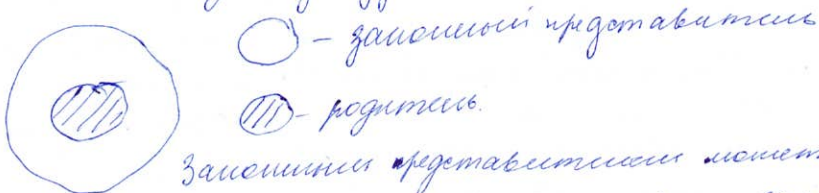 – законный представитель
– родитель.
Законным представителем может